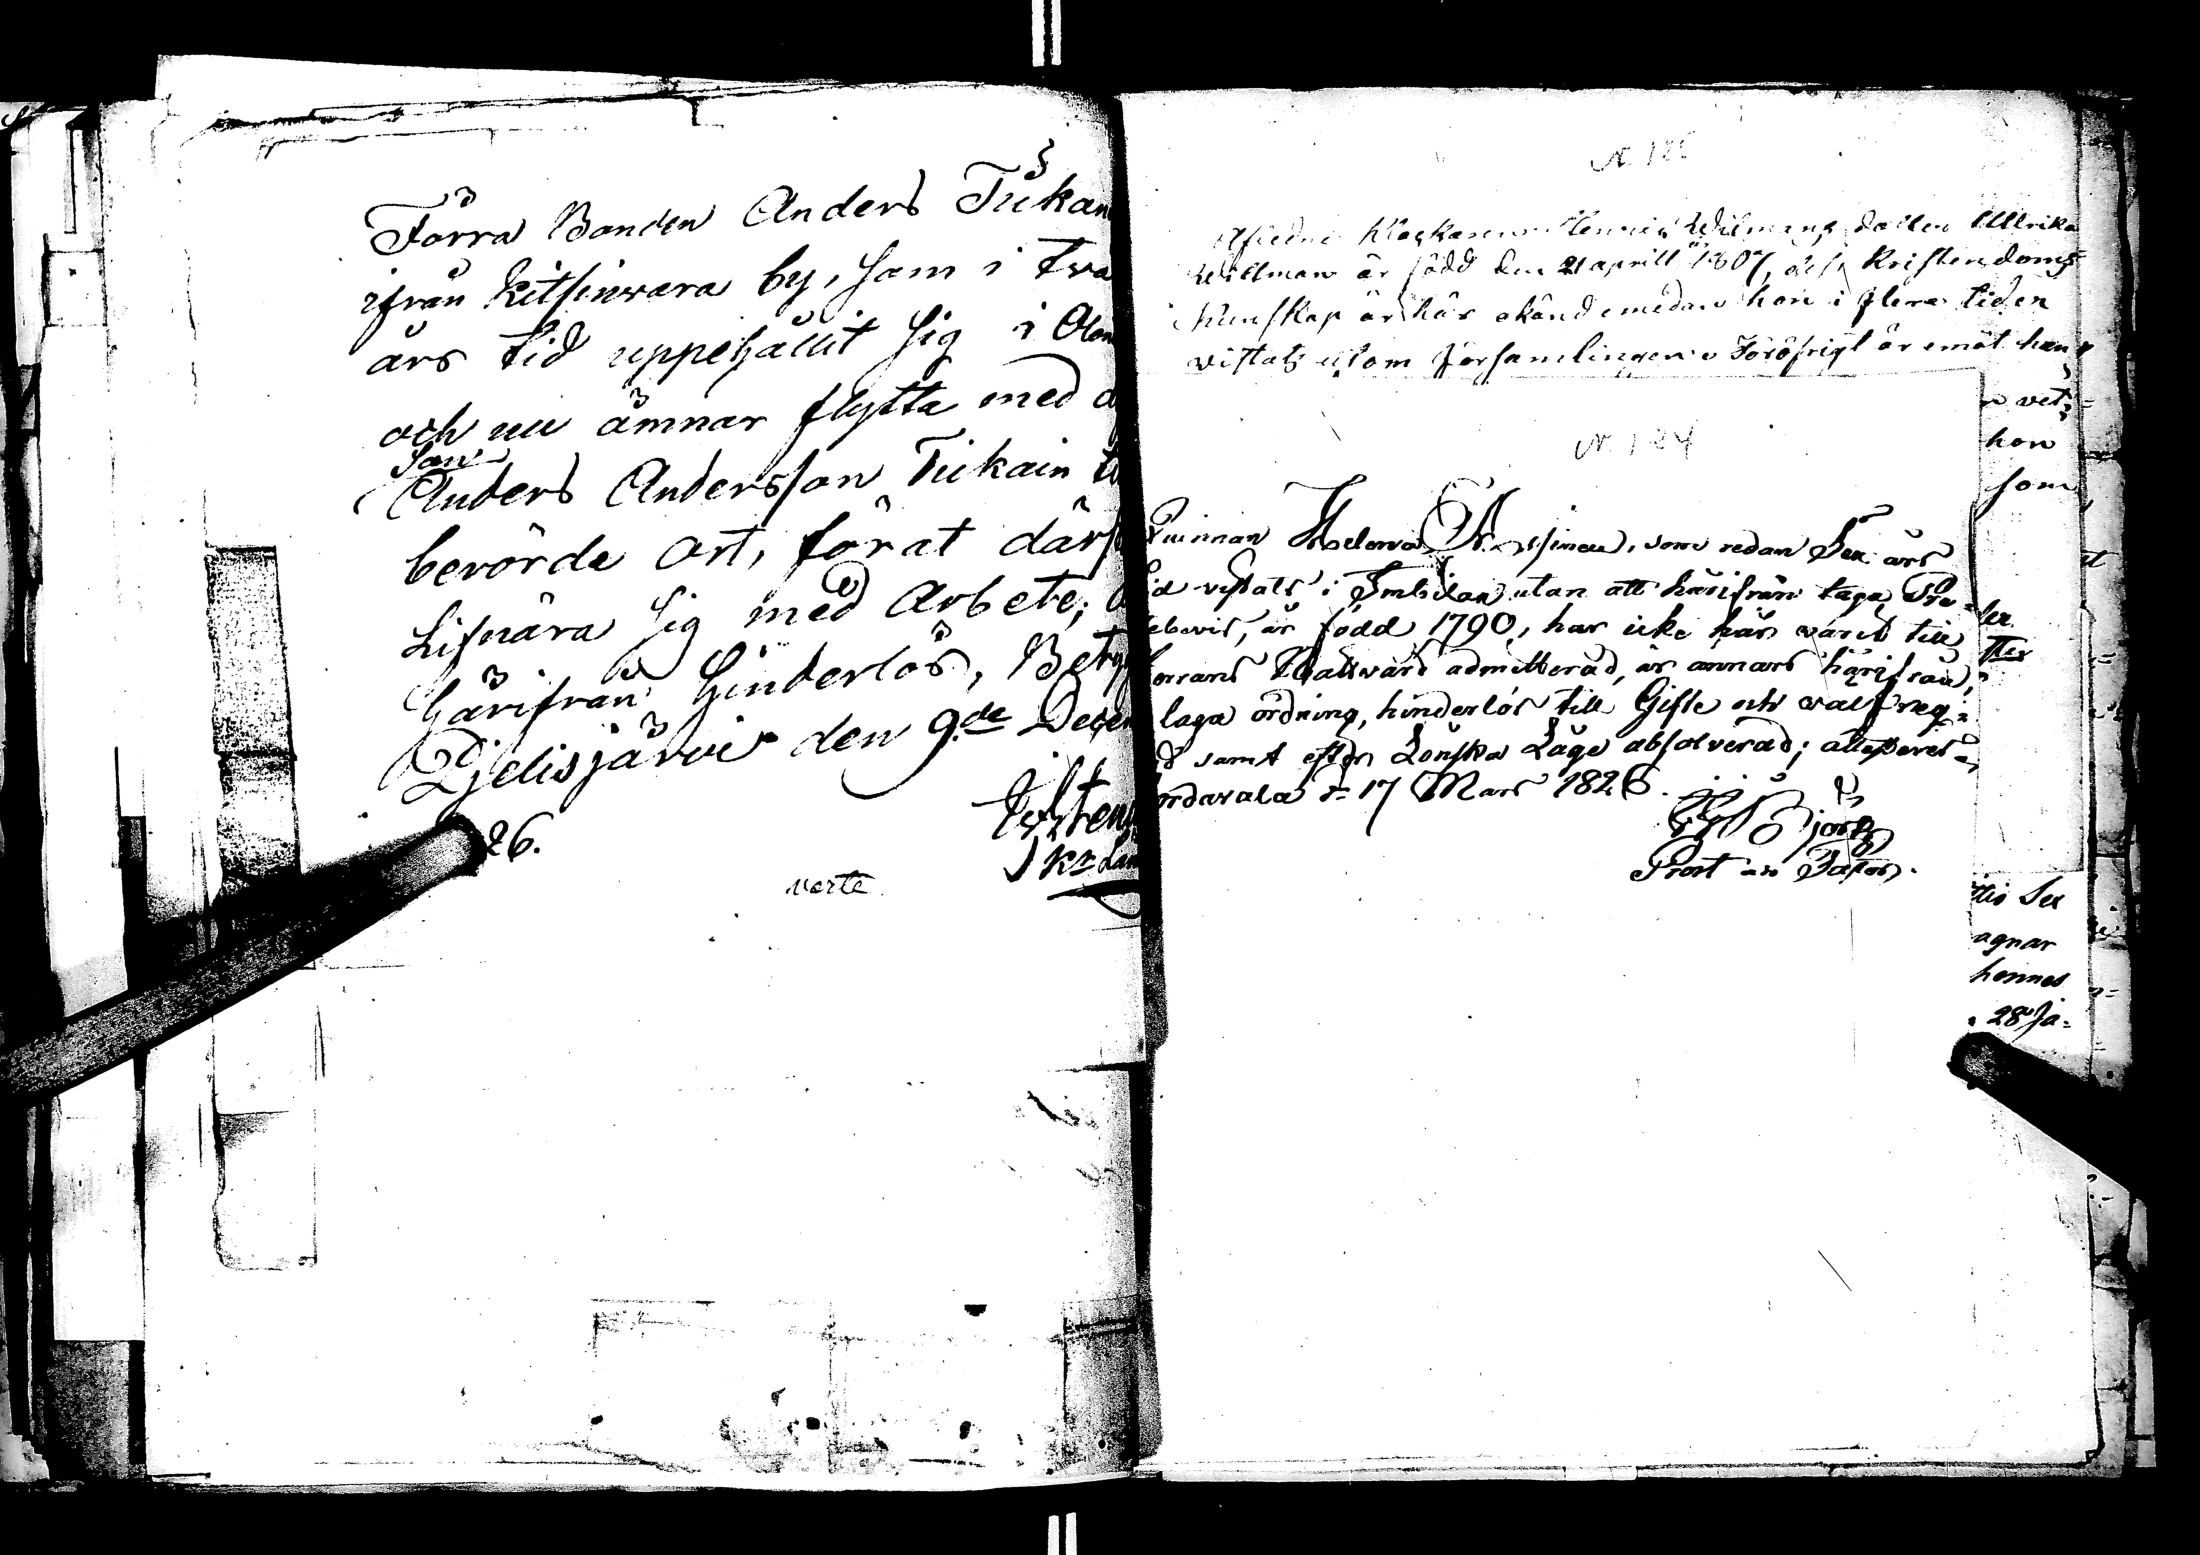 Förra Bonden Anders Tiikan
ifrån Kitsinwara by, som i två
års tid uppehållit sig i Olon
och nu ämnar flytta med
Son
Anders Andersson Tiikain
berörde ort, för at där
Lifnära sig med Arbete;
härifrån hinderlös, Betyg
Pjelisjärvi den 9.de Decem
26.
verte
N. 18
Klockaren Henric Wilmans dotter Ullrika
Willman är född den 21 aprill 1807, dess Kristendoms
kunskap är här okänd emedan hon i flera tider
vistats utom församlingen. Föröfrigt är emot hen
vet
hon
som
N. 184
Qvinnan Helena, som redan Sex års
tid vistats i Imbilax utan att härifrån taga Pre
stebevis, är född 1790, har icke här varit till
Herrans Nattvard admitterad, är annars härifrån,
i laga ordning, hinderlös till Gifte och
samt efter Lönska Läge absolverad; attesteras
Sordavala d. 17 Mars 1826.
Prost
Sex
agnar
hennes
28 Ja=